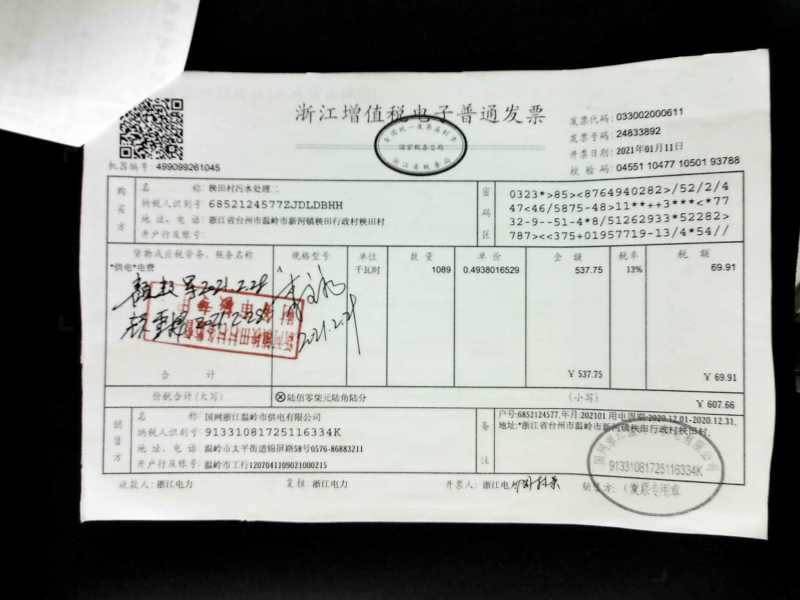 浙江增值税电子普通发票
全国统一发票监制章
国家税务总局
浙江省税务局
发票代码: 033002000611
发票号码: 24833892
开票日期: 2021年01月11日
校验码: 04551 10477 10501 93788
机器编号: 499099261045
购买方
名 称: 秧田村污水处理二
纳税人识别号: 6852124577ZJDLDBHH
地址、电话: 浙江省台州市温岭市新河镇秧田行政村秧田村
开户行及账号:
密码区
0323*>85><8764940282>/52/2/4
47<46/5875-48>11**++3***<*77
32-9--51-4*8/51262933*52282>
787><<375+01957719-13/4*54//
货物或应税劳务、服务名称 规格型号 单位 数量 单价 金额 税率 税额
*供电*电费 A 千瓦时 1089 0.4938016529 537.75 13% 69.91
2021.2.28
2021.2.28
2021.2.28
合 计 ¥ 537.75 ¥ 69.91
价税合计(大写) ⊗陆佰零柒元陆角陆分 (小写) ¥ 607.66
销售方
名 称: 国网浙江温岭市供电有限公司
纳税人识别号: 91331081725116334K
地址、电话: 温岭市太平街道锦屏路58号0576-86883211
开户行及账号: 温岭市工行1207041109021000215
备注
户号:6852124577,年月:202101 用电周期:2020.12.01-2020.12.31,
地址:*浙江省台州市温岭市新河镇秧田行政村秧田村,
收款人: 浙江电力 复核: 浙江电力 开票人: 浙江电力 销售方: (章)
国网浙江温岭市供电有限公司
91331081725116334K
发票专用章